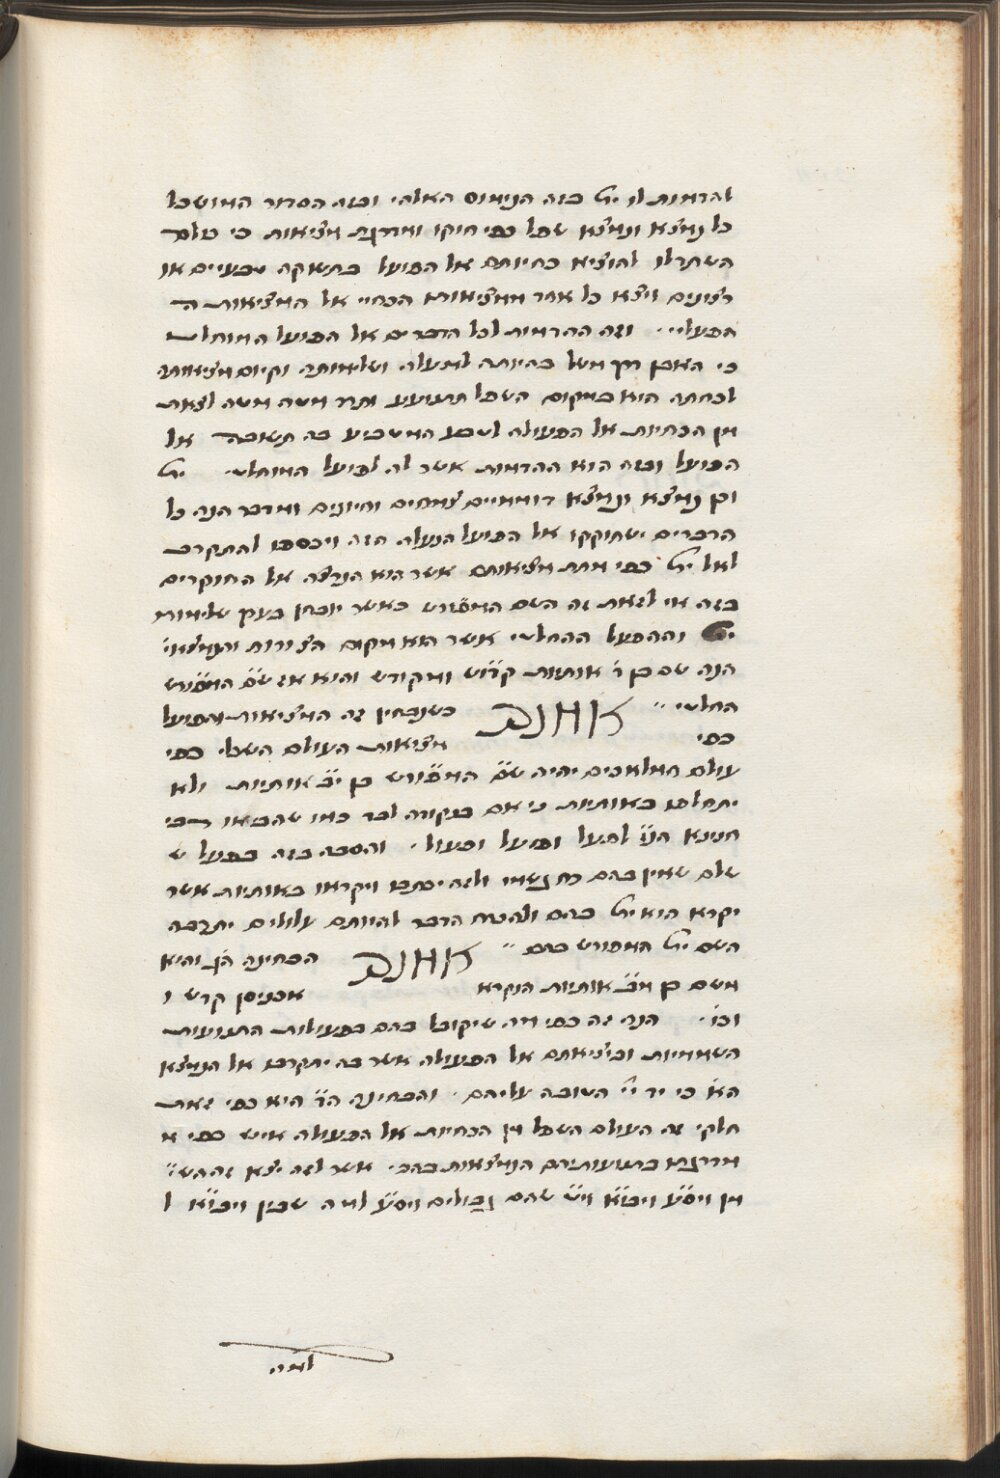 להדמות לו ית׳ בזה הנימוס האלהי ובזה הסדור המושכל
כל נמצא ונמצא שכל כפי חוקו ומדרגת מציאות כי כולם
השתדלו להוציא כחיותם אל הפועל בתשוקה טבעיים או
רצונים ויצא כל אחד ממציאות הכחיי אל המציאות ה
הפעליי ׳ וזה ההדמות לכל הדברים אל הפועל המוחלט
כי האבן דרך משל בהיותה למעלה ושלימותה וקיום מציאותה
לבחתה הוא במקום השפל תתנועע ותרד מטה מטה לצאת
מן הכחיות אל הפעולה לטבע המשפיע בה תשוקה אל
הפועל ובזה הוא ההדמות אשר לה לפועל המוחלט ית׳
וכן נמצא ונמצא דוממיים צמחים וחיונים ומדבר הנה כל
הדברים ישתוקקו אל הפועל הנעלה הזה ויכספו להתקרב
לאל ית׳ כפי מדת מציאותם אשר הוא הנרצה אל החוקרים
בזה אי לזאת זה השם המפורש כאשר יובחן בעצם שלימות
ית׳ וההפעל ההחלטי אשר הוא מקום הצורות והנמצאי׳
הנה שם בן ד׳ אותיות קדוש ומקודש והוא אז שם המפורש
החלטי ״ כשנבחין זה המציאות והפועל
כפי מציאות העולם השכלי כפי
עולם המלאכים יהיה שם המפורש בן י״ב אותיות ולא
יתחלפו באותיות כי אם בנקודה לבד כמו שהביאו רבי
חנינא הנ״ל לפעל ופועל ופעול ׳ והסבה בזה בפעל ש
שלם שאין בהם כח גשמי ולזה יכתבו ויקראו באותיות אשר
יקרא הוא ית׳ בהם ולהכרח הדבר להיותם עלולים יתרבה
השם ית׳ המפורש בהם ״ הבחינה הג׳ והיא
משם בן מ״ב אותיות הנקרא אכניסן קדש ו
וכו׳ ׳ הנה זה כפי מה שיקובל בהם בפעולות התנועות
השמימיות וביציאותם אל הפעולה אשר בה יתקרבו אל הנמצא
הא׳ כי יד י״י הטובה עליהם ׳ והבחינה הד׳ היא כפי זאת
חלקי זה העולם השפל מן הכחיות אל הפעולה איש כפי מ
מדרגתו בתנועותיהם הנמצאות בהכי׳ אשר לזה יצא זה הש״
מן ויסע ויבא ויט שהם גבולים ויסע למה שבין ויבא ל
למה